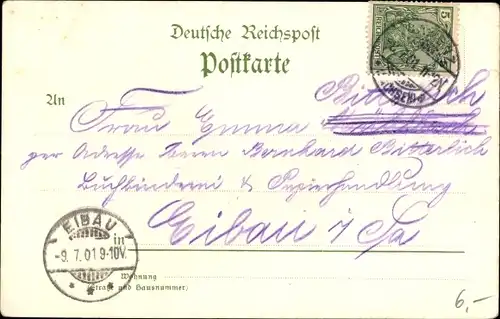 Deutsche Reichspost
Postkarte
5
An
Bitterlich
Frau Emma
per Adresse Herrn Bernhard Bitterlich
Buchbinderei & Papierhandlung
in Eibau i/Sa
EIBAU
-9. 7. 01 9-10V.
* * *
Wohnung
(Straße und Hausnummer)
6,-